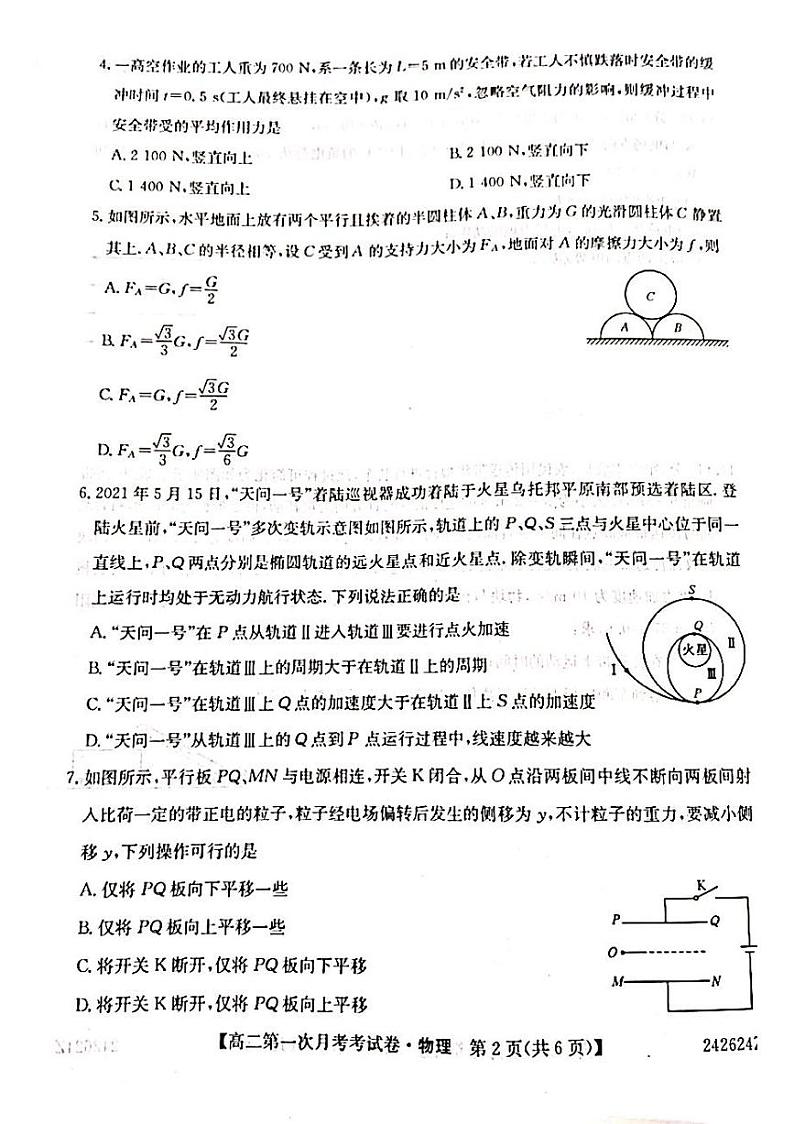 4. 一高空作业的工人重为 700 N,系一条长为 L=5 m 的安全带,若工人不慎跌落时安全带的缓
冲时间 t=0.5 s(工人最终悬挂在空中),g 取 10 m/s²,忽略空气阻力的影响,则缓冲过程中
安全带受的平均作用力是
A. 2 100 N,竖直向上 B. 2 100 N,竖直向下
C. 1 400 N,竖直向上 D. 1 400 N,竖直向下
5. 如图所示,水平地面上放有两个平行且挨着的半圆柱体 A、B,重力为 G 的光滑圆柱体 C 静置
其上.A、B、C 的半径相等,设 C 受到 A 的支持力大小为 F_A,地面对 A 的摩擦力大小为 f,则
A. F_A=G,f=G/2
B. F_A=√3/3 G,f=√3G/2
C. F_A=G,f=√3G/2
D. F_A=√3/3 G,f=√3/6 G
C
A B
6. 2021 年 5 月 15 日,“天问一号”着陆巡视器成功着陆于火星乌托邦平原南部预选着陆区. 登
陆火星前,“天问一号”多次变轨示意图如图所示,轨道上的 P、Q、S 三点与火星中心位于同一
直线上,P、Q 两点分别是椭圆轨道的远火星点和近火星点. 除变轨瞬间,“天问一号”在轨道
上运行时均处于无动力航行状态. 下列说法正确的是
A. “天问一号”在 P 点从轨道Ⅱ进入轨道Ⅲ要进行点火加速
B. “天问一号”在轨道Ⅲ上的周期大于在轨道Ⅱ上的周期
C. “天问一号”在轨道Ⅲ上 Q 点的加速度大于在轨道Ⅱ上 S 点的加速度
D. “天问一号”从轨道Ⅲ上的 Q 点到 P 点运行过程中,线速度越来越大
S
Q
火星
Ⅱ
Ⅲ
Ⅰ
P
7. 如图所示,平行板 PQ、MN 与电源相连,开关 K 闭合,从 O 点沿两板间中线不断向两板间射
入比荷一定的带正电的粒子,粒子经电场偏转后发生的侧移为 y,不计粒子的重力,要减小侧
移 y,下列操作可行的是
A. 仅将 PQ 板向下平移一些
B. 仅将 PQ 板向上平移一些
C. 将开关 K 断开,仅将 PQ 板向下平移
D. 将开关 K 断开,仅将 PQ 板向上平移
K
P Q
O
M N
【高二第一次月考考试卷·物理 第 2 页(共 6 页)】 242624Z